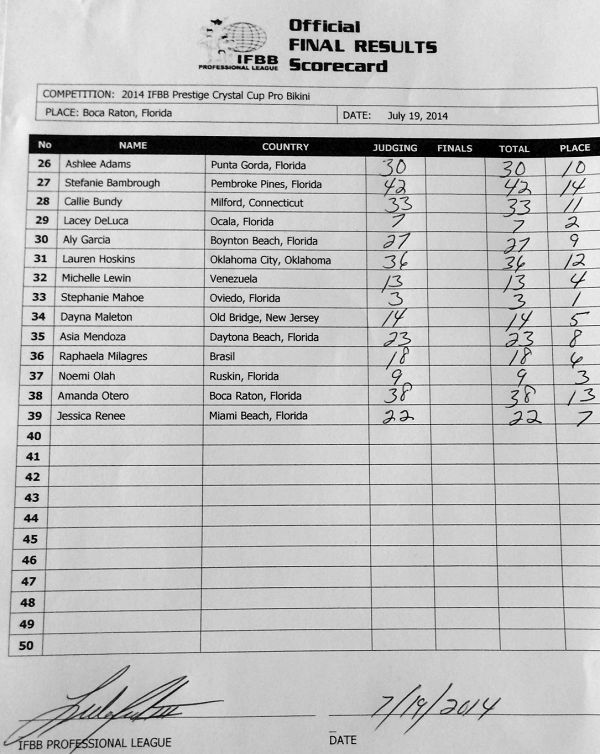 IFBB
PROFESSIONAL LEAGUE
Official
FINAL RESULTS
Scorecard
COMPETITION: 2014 IFBB Prestige Crystal Cup Pro Bikini
PLACE: Boca Raton, Florida DATE: July 19, 2014
No NAME COUNTRY JUDGING FINALS TOTAL PLACE
26 Ashlee Adams Punta Gorda, Florida 30 30 10
27 Stefanie Bambrough Pembroke Pines, Florida 42 42 14
28 Callie Bundy Milford, Connecticut 33 33 11
29 Lacey DeLuca Ocala, Florida 7 7 2
30 Aly Garcia Boynton Beach, Florida 27 27 9
31 Lauren Hoskins Oklahoma City, Oklahoma 36 36 12
32 Michelle Lewin Venezuela 13 13 4
33 Stephanie Mahoe Oviedo, Florida 3 3 1
34 Dayna Maleton Old Bridge, New Jersey 14 14 5
35 Asia Mendoza Daytona Beach, Florida 23 23 8
36 Raphaela Milagres Brasil 18 18 6
37 Noemi Olah Ruskin, Florida 9 9 3
38 Amanda Otero Boca Raton, Florida 38 38 13
39 Jessica Renee Miami Beach, Florida 22 22 7
40
41
42
43
44
45
46
47
48
49
50
7/19/2014
IFBB PROFESSIONAL LEAGUE DATE